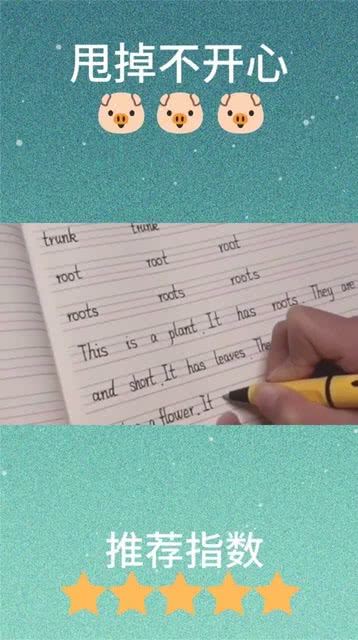 甩掉不开心
trunk trunk
root root root
roots roots roots
This is a plant. It has roots. They are
and short. It has leaves. The
a flower. It
推荐指数